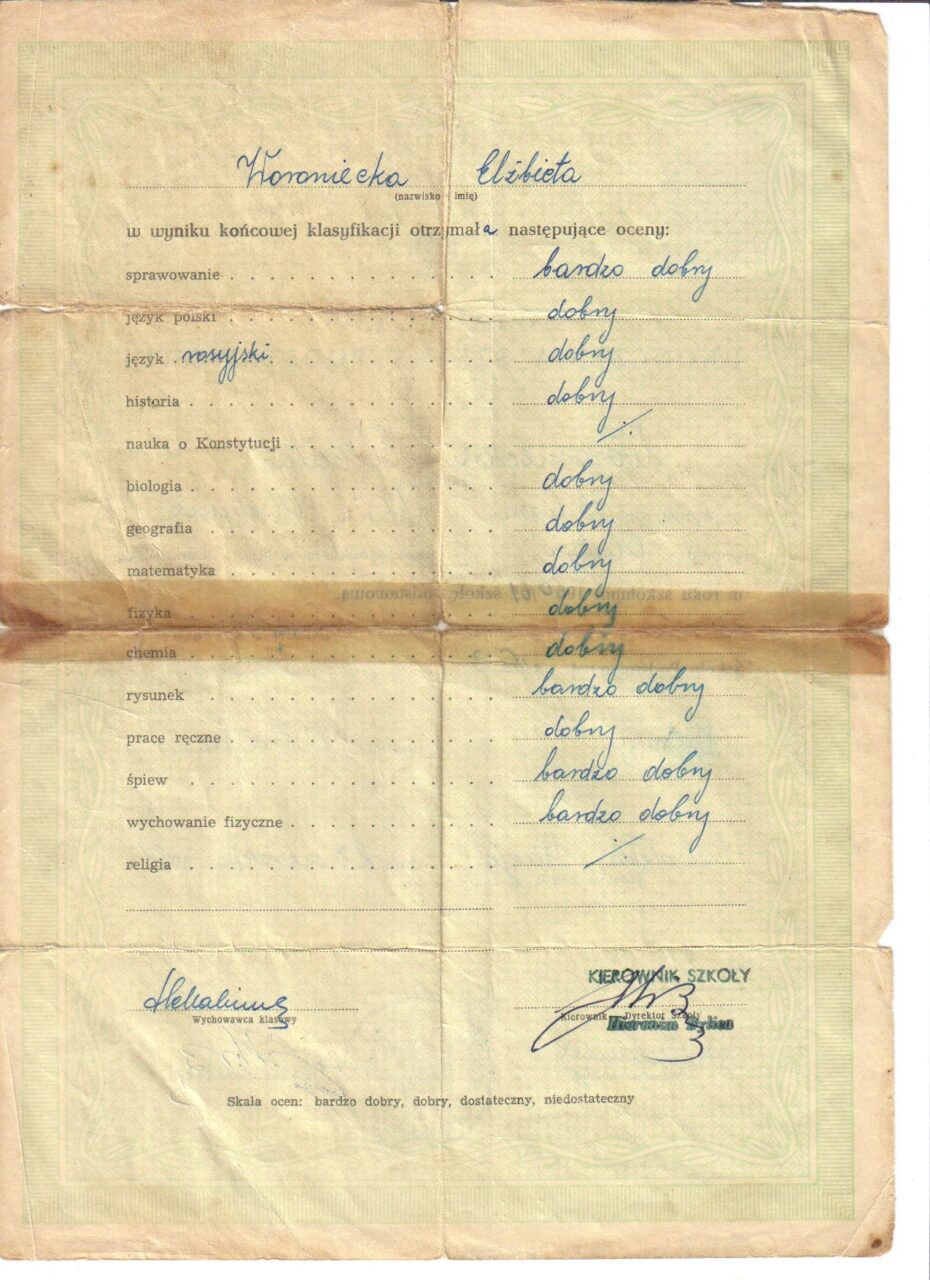 Woroniecka Elżbieta
(nazwisko i imię)
w wyniku końcowej klasyfikacji otrzymała następujące oceny:
sprawowanie . . . . . . . . . . . . . . bardzo dobry
język polski . . . . . . . . . . . . . . dobry
język rosyjski . . . . . . . . . . . . dobry
historia . . . . . . . . . . . . . . . . dobry
nauka o Konstytucji . . . . . . . . . . . ./.
biologia . . . . . . . . . . . . . . . . dobry
geografia . . . . . . . . . . . . . . . dobry
matematyka . . . . . . . . . . . . . . dobry
fizyka . . . . . . . . . . . . . . . . . dobry
chemia . . . . . . . . . . . . . . . . dobry
rysunek . . . . . . . . . . . . . . . . bardzo dobry
prace ręczne . . . . . . . . . . . . . . dobry
śpiew . . . . . . . . . . . . . . . . . bardzo dobry
wychowanie fizyczne . . . . . . . . . . . bardzo dobry
religia . . . . . . . . . . . . . . . . ./.
KIEROWNIK SZKOŁY
Wychowawca klasowy
Kierownik Dyrektor Szkoły
Skala ocen: bardzo dobry, dobry, dostateczny, niedostateczny